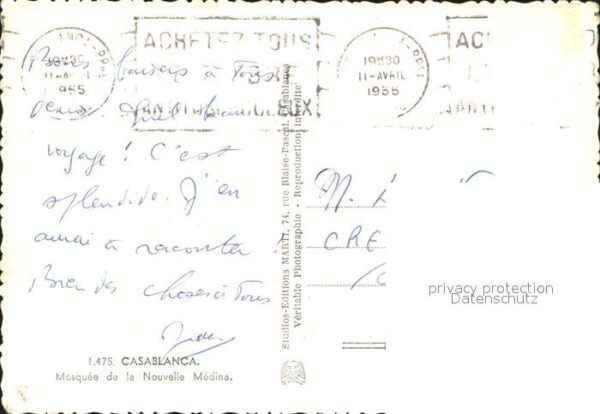 CASA-PPAL
19H30
11-AVRIL
1955
ACHETEZ TOUS
ANTI
EUX
19H30
11-AVRIL
1955
AC
ANTI
Bons baisers à Tous
deux. Quel beau
voyage! C'est
splendide. J'en
aurai à raconter!
Bien des choses à Tous
1.475. CASABLANCA.
Mosquée de la Nouvelle Médina.
Studios-Editions MARTI, 74, rue Blaise-Pascal, Casablanca
Véritable Photographie - Reproduction interdite
M.
CRE
privacy protection
Datenschutz